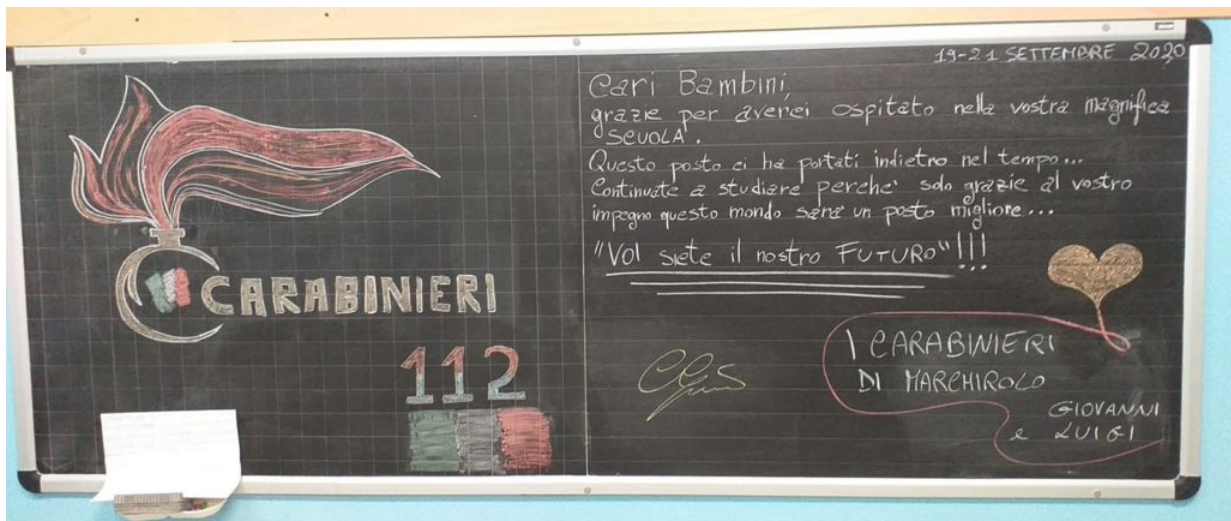 CARABINIERI
112
19-21 SETTEMBRE 2020
Cari Bambini,
grazie per averci ospitato nella vostra magnifica
SCUOLA.
Questo posto ci ha portati indietro nel tempo...
Continuate a studiare perche' solo grazie al vostro
impegno questo mondo sara' un posto migliore...
"VOI siete il nostro FUTURO"!!!
I CARABINIERI
DI MARCHIROLO
GIOVANNI
e LUIGI